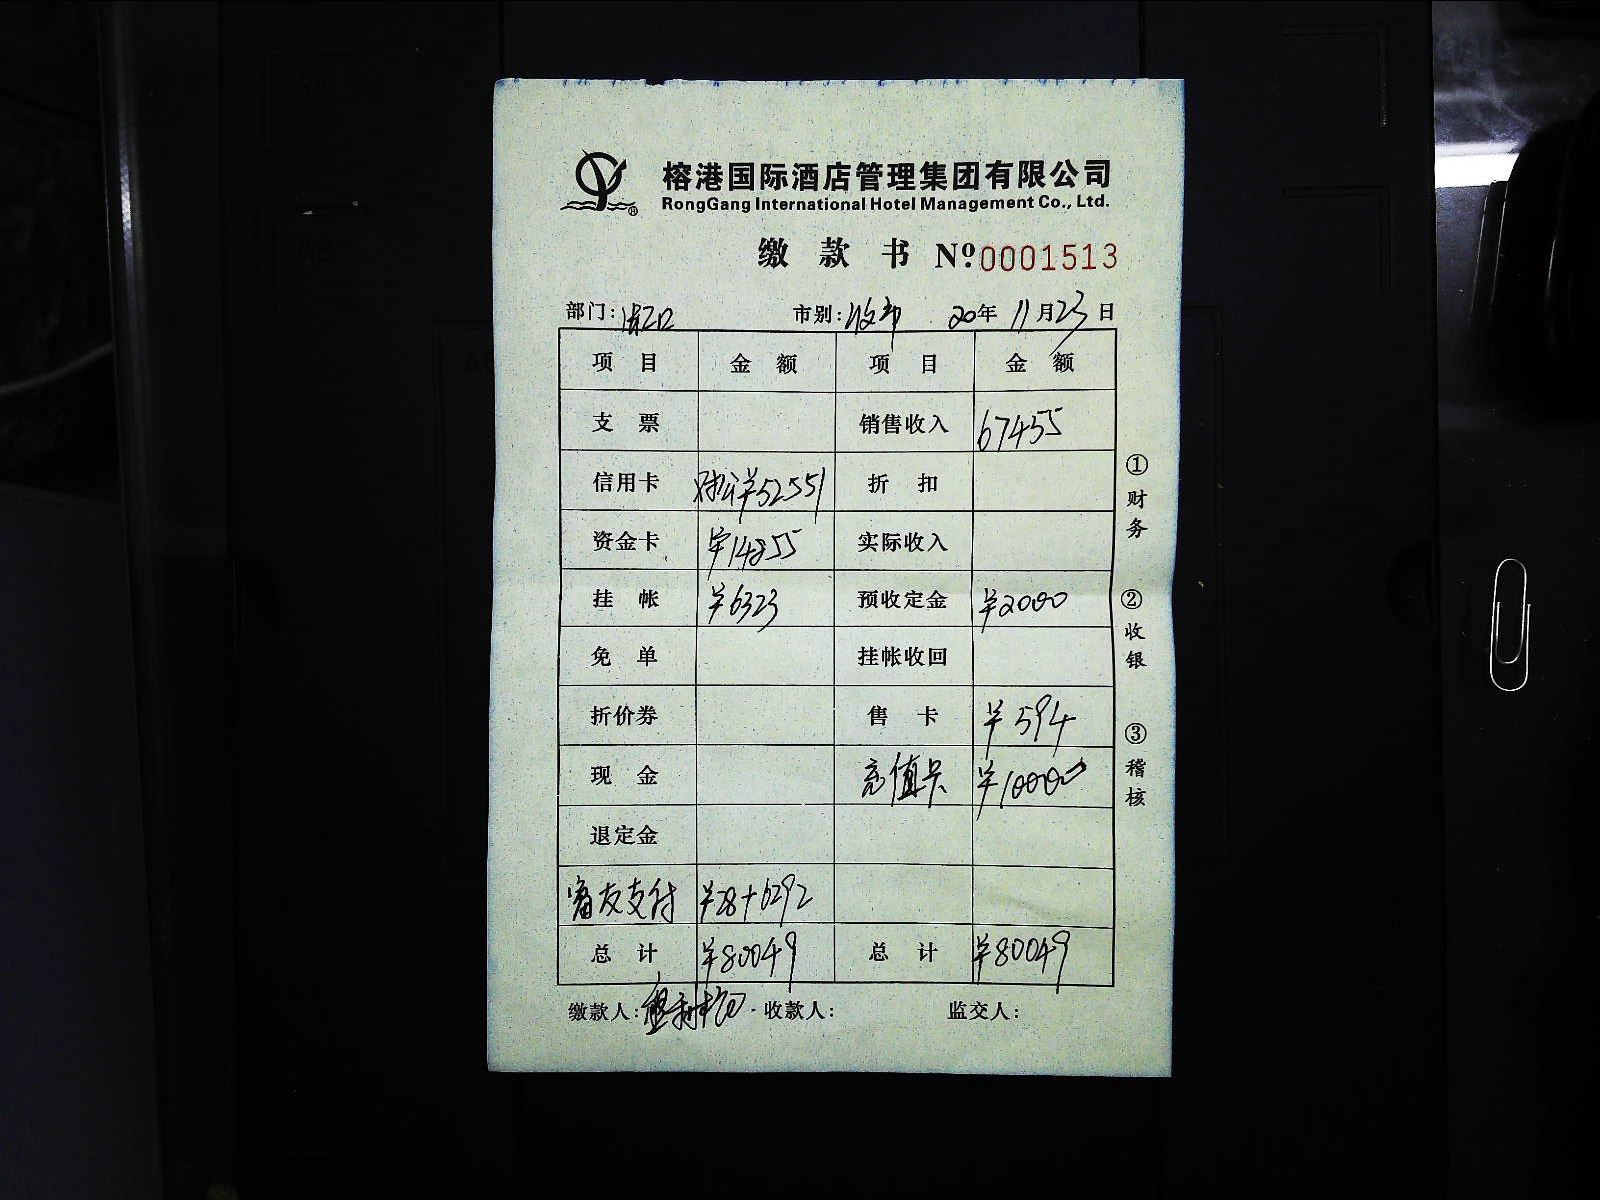 榕港国际酒店管理集团有限公司
RongGang International Hotel Management Co., Ltd.
缴 款 书 Nº 0001513
部门: 市别: 20年 11月23日
项 目 金 额 项 目 金 额
支 票 销售收入 67455
信用卡 ¥52551 折 扣
资金卡 ¥14855 实际收入
挂 帐 ¥6323 预收定金 ¥2000
免 单 挂帐收回
折价券 售 卡 ¥594
现 金 充值卡 ¥10000
退定金
支付 ¥28+6292
总 计 ¥80049 总 计 ¥80049
缴款人: 收款人: 监交人:
①财务
②收银
③稽核